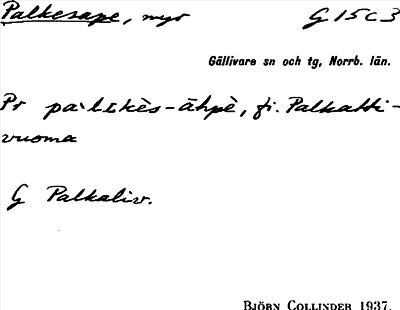 Palkesape, myr G 15 c 3
Gällivare sn och tg, Norrb. län.
Pr pạ̀lkès-āhpè, fi. Palkatti-
vuoma
G Palkaliv.
BJÖRN COLLINDER 1937.